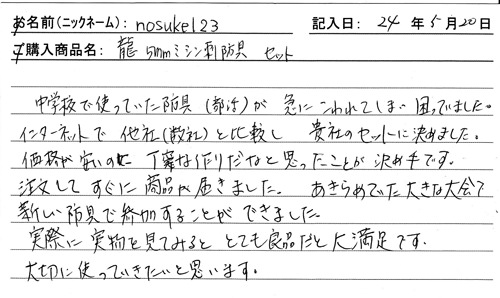 お名前(ニックネーム): nosuke123 記入日: 24 年 5 月 20 日
ご購入商品名: 龍 5mmミシン刺防具 セット
中学校で使っていた防具(部活)が 急に こわれてしまい 困っていました。
インターネットで 他社(数社)と比較し 貴社のセットに決めました。
価格が安いのに 丁寧な作りだなと思ったことが 決め手です。
注文して すぐに 商品が届きました。 あきらめていた大きな大会で
新しい防具で参加することが できました。
実際に 実物を見てみると とても良品だと 大満足です。
大切に使っていきたいと思います。